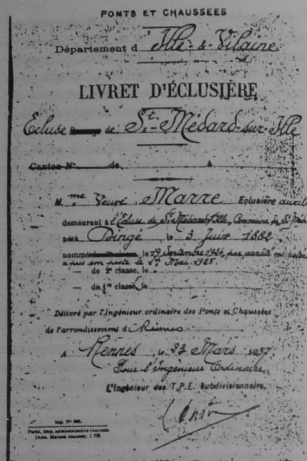 PONTS ET CHAUSSÉES
Département d'Ille-&-Vilaine
LIVRET D'ÉCLUSIÈRE
Ecluse de: St-Médard-sur-Ille
Canton N° de à
M me Veuve Marre Eclusière auxil
demeurant à l'Ecluse de St Médard s/Ille, Commune de St
née à Dingé le 3 Juin 1882
nommée le 19
a pris son poste le 1er Mai 1925.
— de 2e classe, le
— de 1re classe, le
Délivré par l'Ingénieur ordinaire des Ponts et Chaussées
de l'arrondissement de Rennes
A Rennes, le 23 Mars 1937
Pour l'Ingénieur Ordinaire,
L'Ingénieur des T.P.E. Subdivisionnaire,